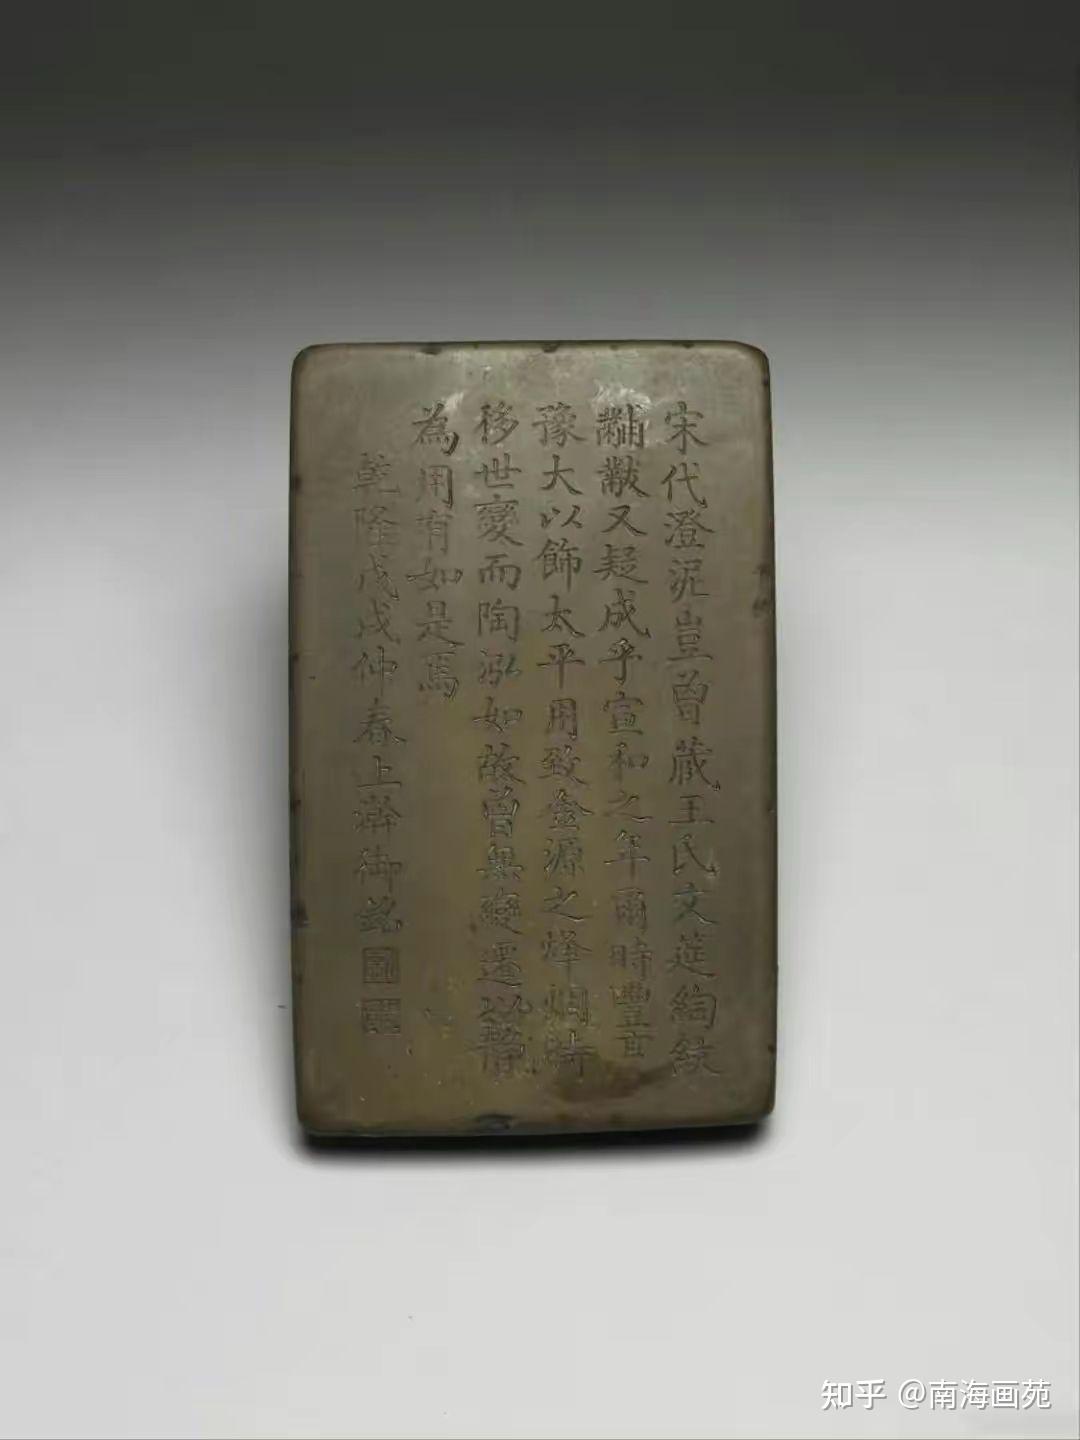 宋代澄泥豈曾藏王氏文筵絢紋
黼黻又疑成乎宣和之年爾時豐亨
豫大以飾太平用致金源之烽烟時
移世變而陶泓如故曾無變遷以靜
為用有如是焉
乾隆戊戌仲春上澣御銘
知乎 @南海画苑